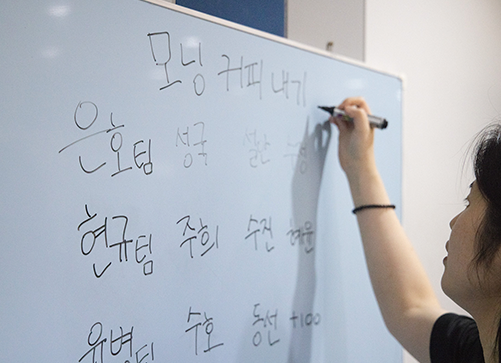 모닝 커피 내기
은호팀 성국 설난 수정
현규팀 주희 수진 혜윤
유병팀 수호 동선 +100